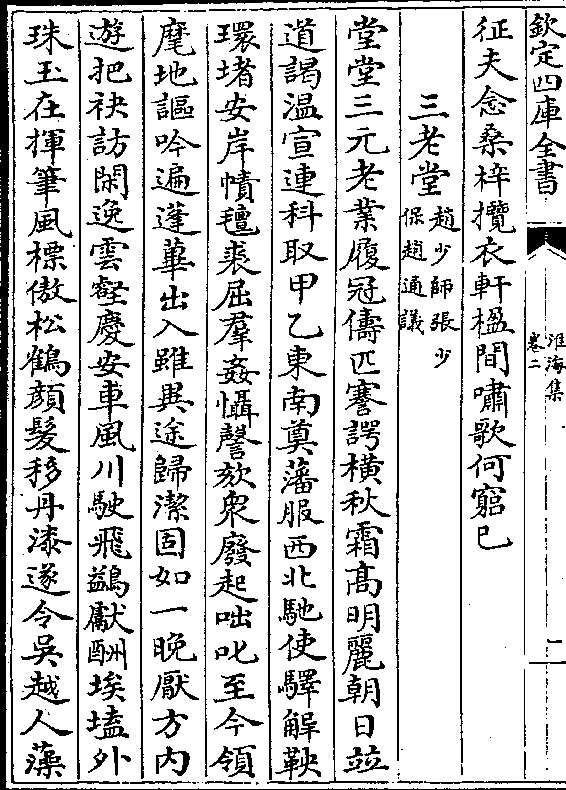 欽定四庫全書
淮海集
卷二
二
征夫念桑梓攬衣軒楹間嘯歌何窮已
三老堂趙少師張少保趙通議
堂堂三元老業履冠儔匹謇諤橫秋霜髙明麗朝日竝
道謁温宣連科取甲乙東南奠藩服西北馳使驛解鞅
環堵安岸幘氊裘屈羣姦懾謦欬衆廢起咄叱至今領
麾地謳吟遍蓬蓽出入雖異途歸潔固如一晚厭方内
遊把袂訪閑逸雲壑慶安車風川駛飛鷁獻酬埃壒外
珠玉在揮筆風標傲松鶴顔髮移丹漆遂令吳越人藻